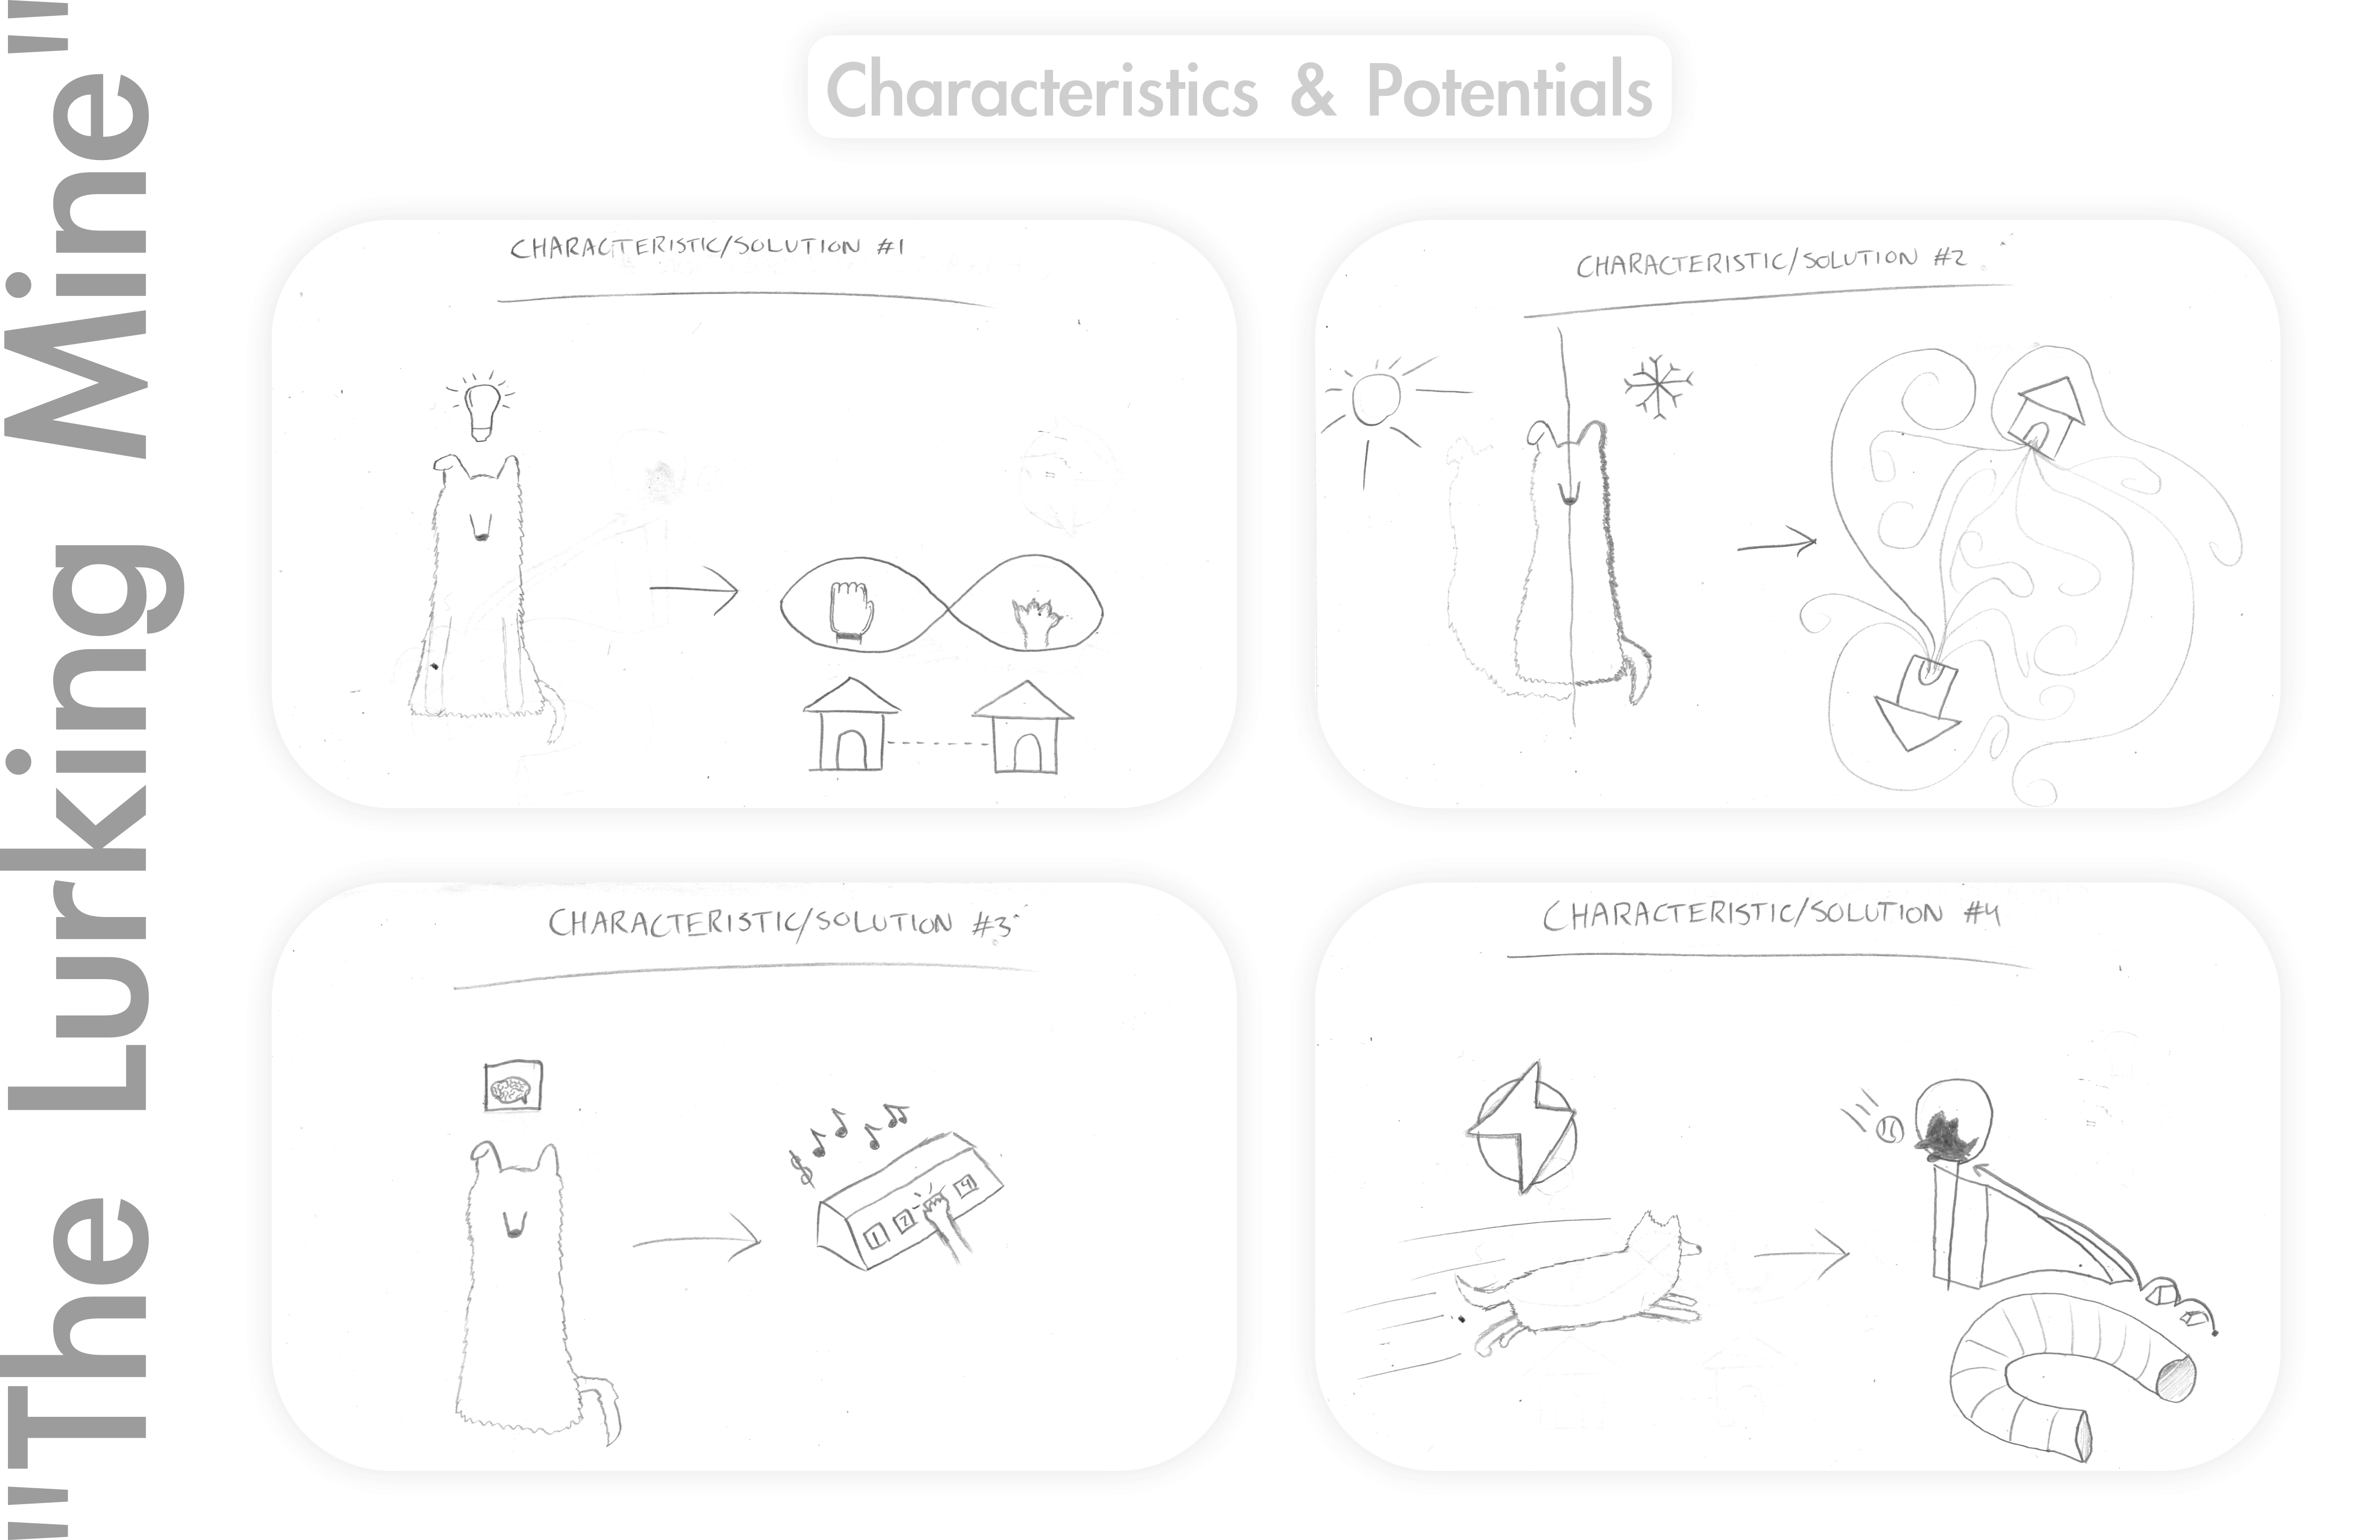 "The Lurking Mine"
Characteristics & Potentials
CHARACTERISTIC/SOLUTION #1
CHARACTERISTIC/SOLUTION #2
CHARACTERISTIC/SOLUTION #3
1 2 4
CHARACTERISTIC/SOLUTION #4